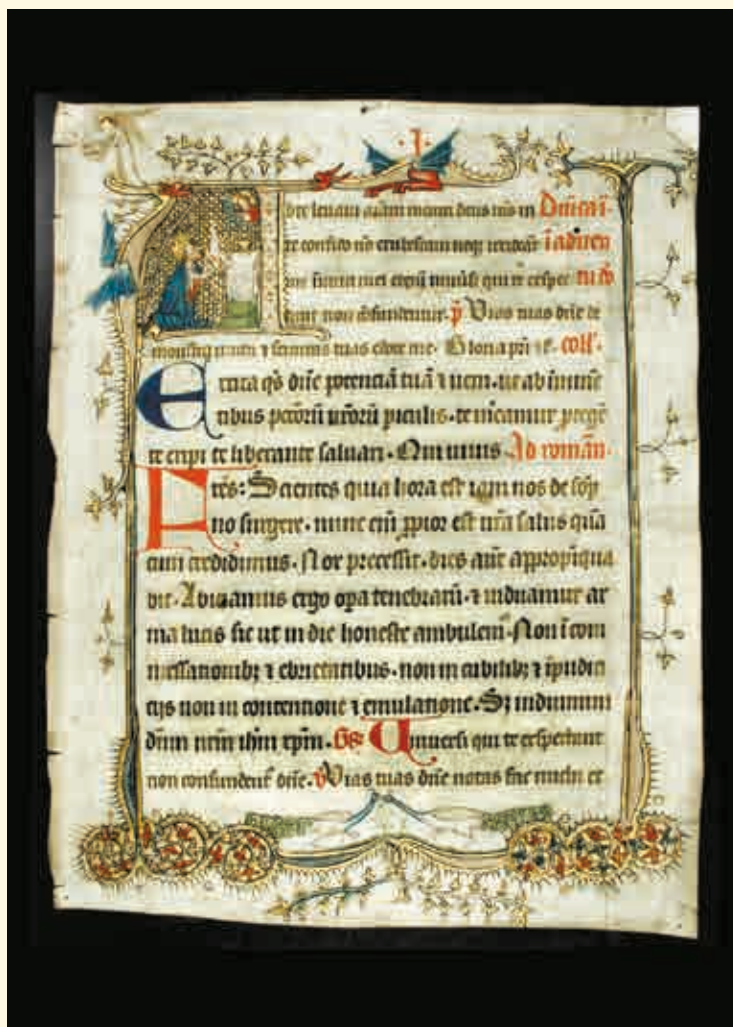 .I.
te leuaui aīam meam deus ms in Dn̄ica ī.
te confido nō erubescam neqȝ irrideāt ī aduen
me inimici mei eteī uniūsi qui te expec
tant non cōfundentur. p̄ Vias tuas dn̄e de
monstra michi ⁊ semitas tuas edoce me. Gloria pr̄i coll̄.
Excita qs̄ dn̄e potenciā tuā ⁊ ueni. ut ab immīe
tibus pctōrū nr̄orū piculis. te mereamur protegē
te eripi te liberante saluari. Qui uiuis Ad romān.
Frēs: Scientes quia hora est iam nos de sōp
no surgere. nunc eī ppior est nr̄a salus quā
cum credidimus. Nox precessit. dies autē appropīqua
bit. Abiciamus ergo opa tenebrarū. ⁊ induamur ar
ma lucis sic ut in die honeste ambulem̄. Non ī com
messationibȝ ⁊ ebrietatibus. non in cubilibȝ ⁊ īpudici
cijs non in contentione ⁊ emulatione. Sȝ induimini
dn̄m nr̄m ihm xpm. Vniuersi qui te expectant
non confundent̄ dn̄e. V Vias tuas dn̄e notas fac michi et